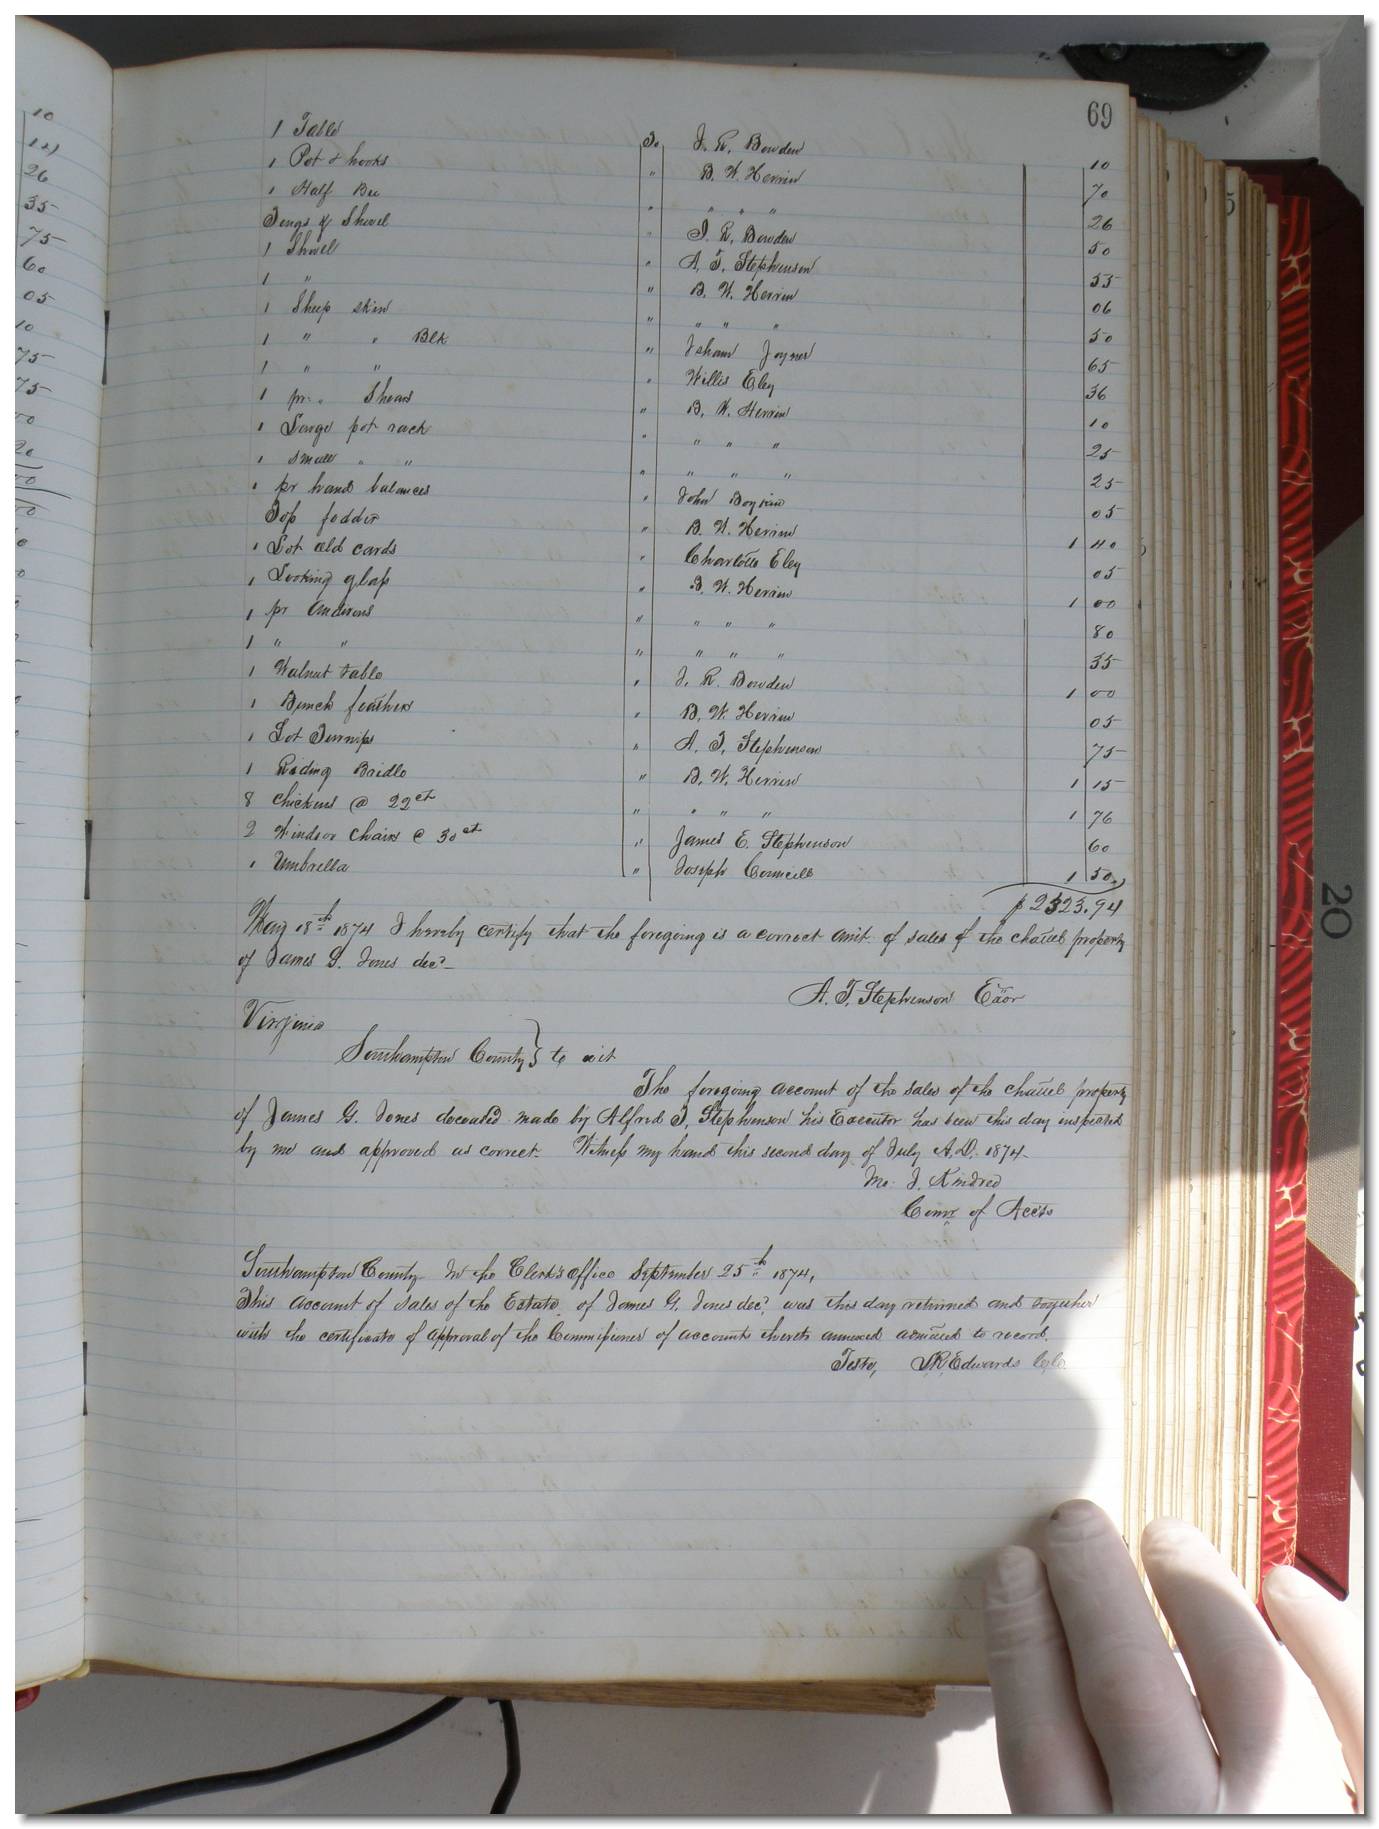 69
1 Table To J. R. Bowden 10
1 Pot & hooks " B. W. Herrin 70
1 Half Bu " " " " 26
Tongs & Shovel " J. R. Bowden 50
1 Shovel " A. T. Stephenson 55
1 " " B. W. Herrin 06
1 Sheep skin " " " " 50
1 " " Blk " Isham Joyner 65
1 " " " Willis Eley 36
1 pr. " Shears " B. W. Herrin 10
1 Large pot rack " " " " 25
1 small " " " " " " 25
1 pr hand balances " John Boykin 05
Top fodder " B. W. Herrin 1 40
1 Lot old cards " Charlotte Eley 05
1 Looking glass " B. W. Herrin 1 00
1 pr Andirons " " " " 80
1 " " " " " " 35
1 Walnut table " J. R. Bowden 1 00
1 Bunch feathers " B. W. Herrin 05
1 Lot Turnips " A. T. Stephenson 75
1 Riding Bridle " B. W. Herrin 1 15
8 Chickens @ 22ct " " " " 1 76
2 Windsor Chairs @ 30ct " James E. Stephenson 60
1 Umbrella " Joseph Councill 1 50
$2323.94
May 18th 1874 I hereby certify that the foregoing is a correct amt. of sales of the chattel property
of James G. Jones decd
A. T. Stephenson Exor
Virginia
Southampton County } to wit
The foregoing account of the sales of the chattel property
of James G. Jones deceased made by Alfred T. Stephenson his Executor has been this day inspected
by me and approved as correct. Witness my hand this second day of July A.D. 1874
Jno. J. Kindred
Comr of Accts
Southampton County In the Clerk's Office September 25th 1874,
This account of sales of the Estate of James G. Jones decd, was this day returned and together
with the certificate of approval of the Commissioner of accounts thereto annexed admitted to record.
Teste, JR, Edwards
20